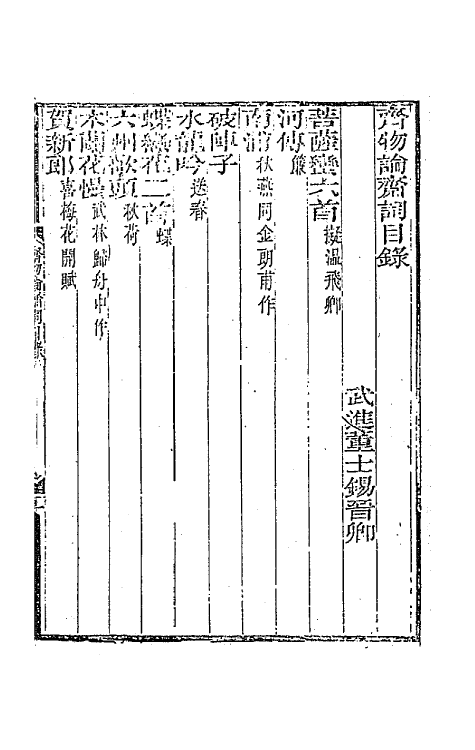 齊物論齋詞目錄
武進董士錫晉卿
菩薩蠻六首擬溫飛卿
河傳簾
南浦秋燕同金朗甫作
破陣子
水龍吟送春
蝶戀花二首蝶
六州歌頭秋荷
木蘭花慢武林歸舟中作
賀新郎喜梅花開賦
齊物論齋詞目錄